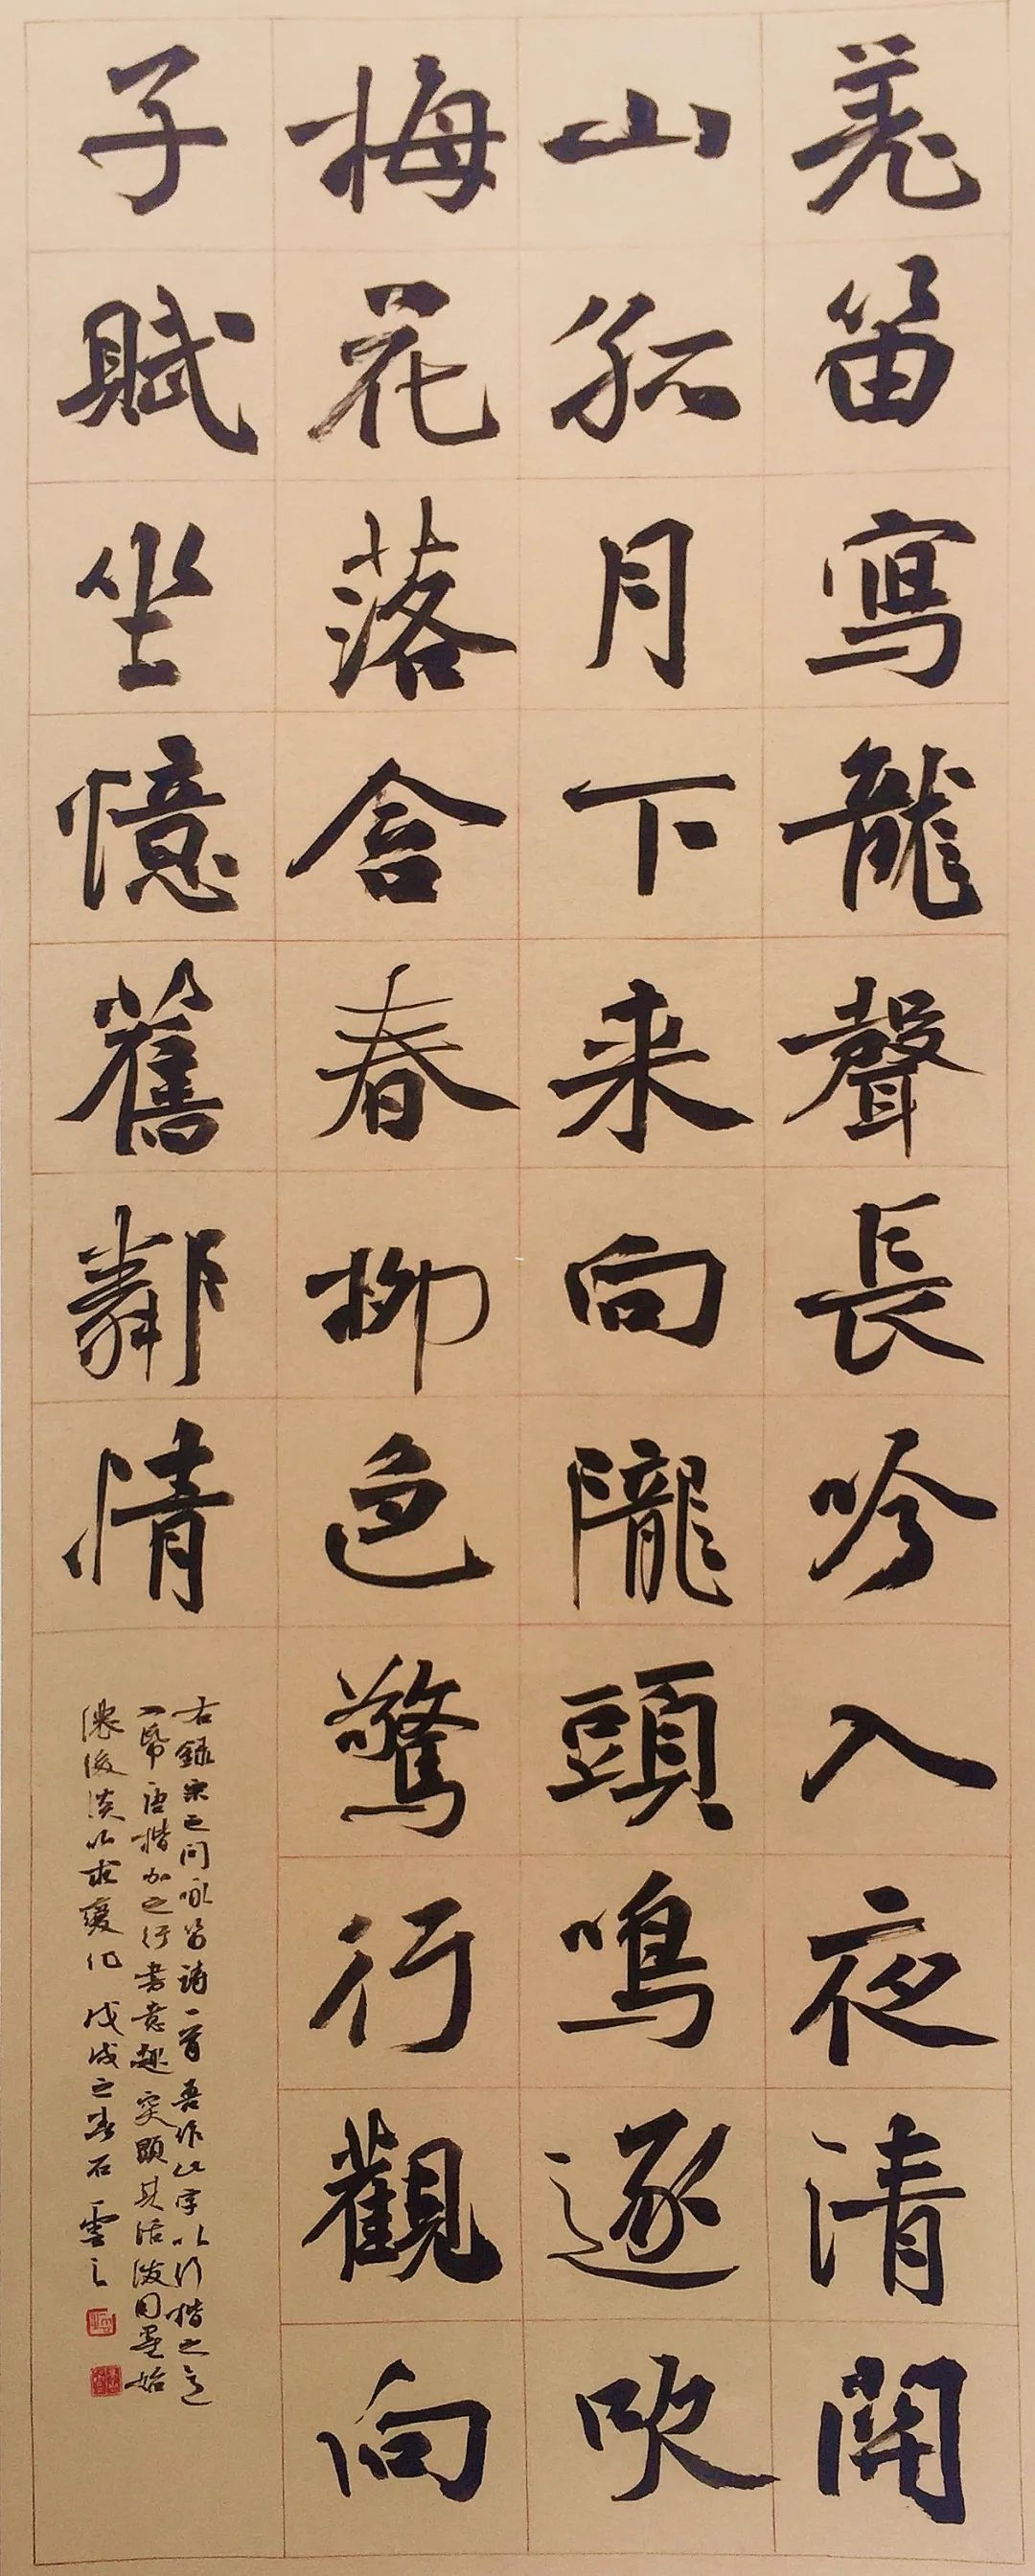 羌笛寫龍聲長吟入夜清関
山孤月下来向隴頭鳴逐吹
梅花落含春柳色驚行觀向
子賦坐憶舊鄰情
右録宋之問咏笛詩一首吾作此字以行楷之意
入帋唐楷加之行書意趣突顯其活潑用墨始
濃後淡以求變化戊戌之春石雲